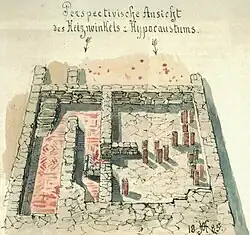 Perspectivische Ansicht
des Heizwinkels = Hypocaustums.
18 85.